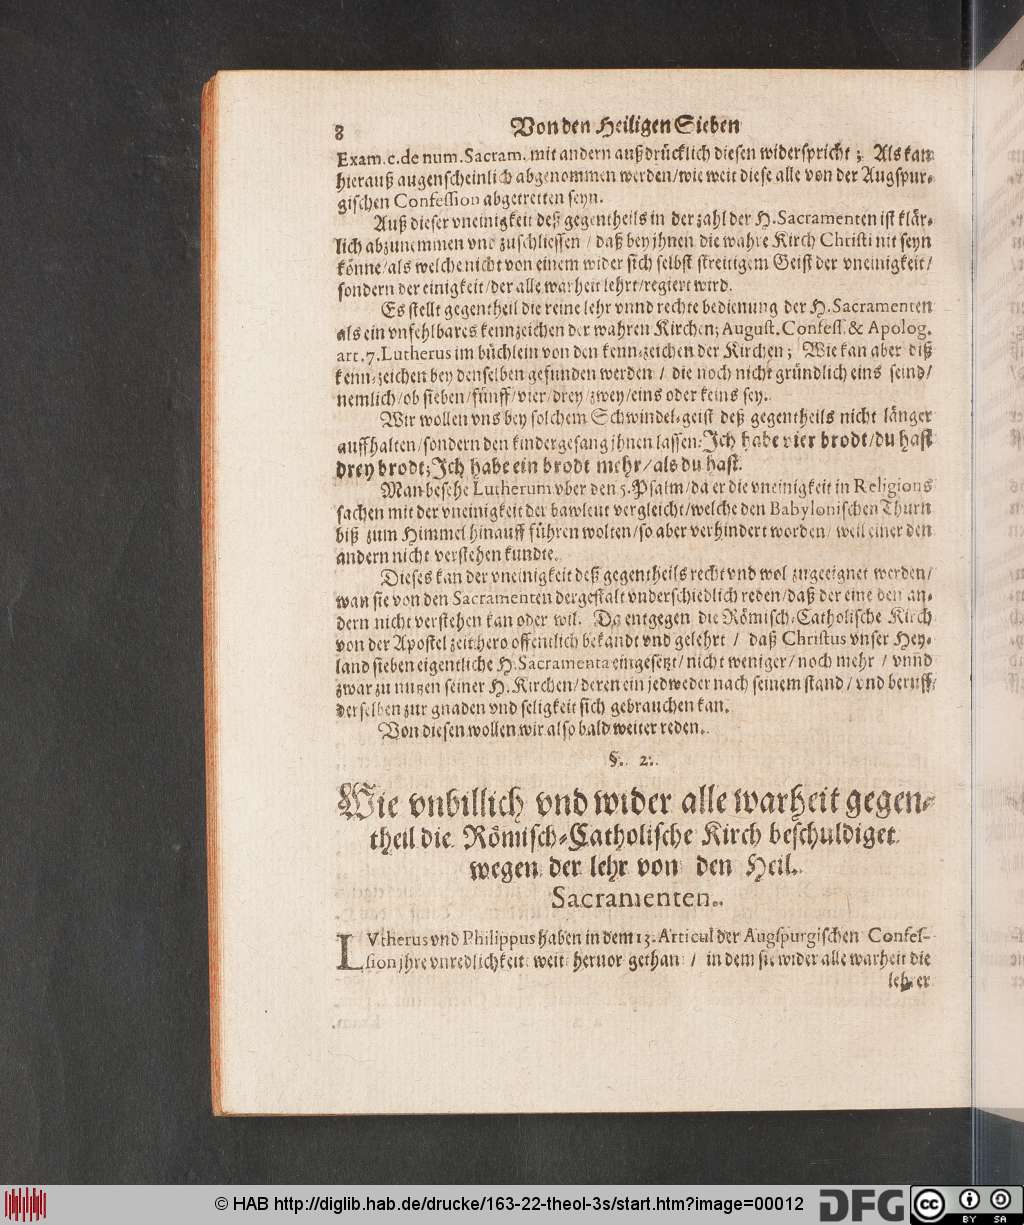 8 Von den Heiligen Sieben
Exam. c. de num. Sacram. mit andern außdrücklich diesen widerspricht; Als kan
hierauß augenscheinlich abgenommen werden/wie weit diese alle von der Augspur-
gischen Confession abgetretten seyn.
Auß dieser vneinigkeit deß gegentheils in der zahl der H. Sacramenten ist klär-
lich abzunemmen vnd zuschliessen / daß bey jhnen die wahre Kirch Christi nit seyn
könne/als welche nicht von einem wider sich selbst streitigem Geist der vneinigkeit/
sondern der einigkeit/der alle warheit lehrt/regiert wird.
Es stellt gegentheil die reine lehr vnnd rechte bedienung der H. Sacramenten
als ein vnfehlbares kennzeichen der wahren Kirchen; August. Confess. & Apolog.
art. 7. Lutherus im büchlein von den kenn-zeichen der Kirchen; Wie kan aber diß
kenn-zeichen bey denselben gefunden werden / die noch nicht gründlich eins seind/
nemlich/ob sieben/fünff/vier/drey/zwey/eins oder keins sey.
Wir wollen vns bey solchem Schwindel-geist deß gegentheils nicht länger
auffhalten/sondern den kindergesang jhnen lassen: Ich habe vier brodt/du hast
drey brodt; Ich habe ein brodt mehr/als du hast.
Man besehe Lutherum vber den 5. Psalm/da er die vneinigkeit in Religions
sachen mit der vneinigkeit der bawleut vergleicht/welche den Babylonischen Thurn
biß zum Himmel hinauff führen wolten/so aber verhindert worden/ weil einer den
andern nicht verstehen kundte.
Dieses kan der vneinigkeit deß gegentheils recht vnd wol zugeeignet werden/
wan sie von den Sacramenten dergestalt vnderschiedlich reden/daß der eine den an-
dern nicht verstehen kan oder wil. Da entgegen die Römisch-Catholische Kirch
von der Apostel zeit hero offentlich bekandt vnd gelehrt / daß Christus vnser Hey-
land sieben eigentliche H. Sacramenta eingesetzt/ nicht weniger/ noch mehr / vnnd
zwar zu nutzen seiner H. Kirchen/deren ein jedweder nach seinem stand/ vnd beruff/
derselben zur gnaden vnd seligkeit sich gebrauchen kan.
Von diesen wollen wir also bald weiter reden.
§. 2.
Wie vnbillich vnd wider alle warheit gegen-
theil die Römisch-Catholische Kirch beschuldiget
wegen der lehr von den Heil.
Sacramenten.
LVtherus vnd Philippus haben in dem 13. Articul der Augspurgischen Confes-
sion jhre vnredlichkeit weit heruor gethan / in dem sie wider alle warheit die
lehrer
© HAB http://diglib.hab.de/drucke/163-22-theol-3s/start.htm?image=00012
DFG
cc
BY SA